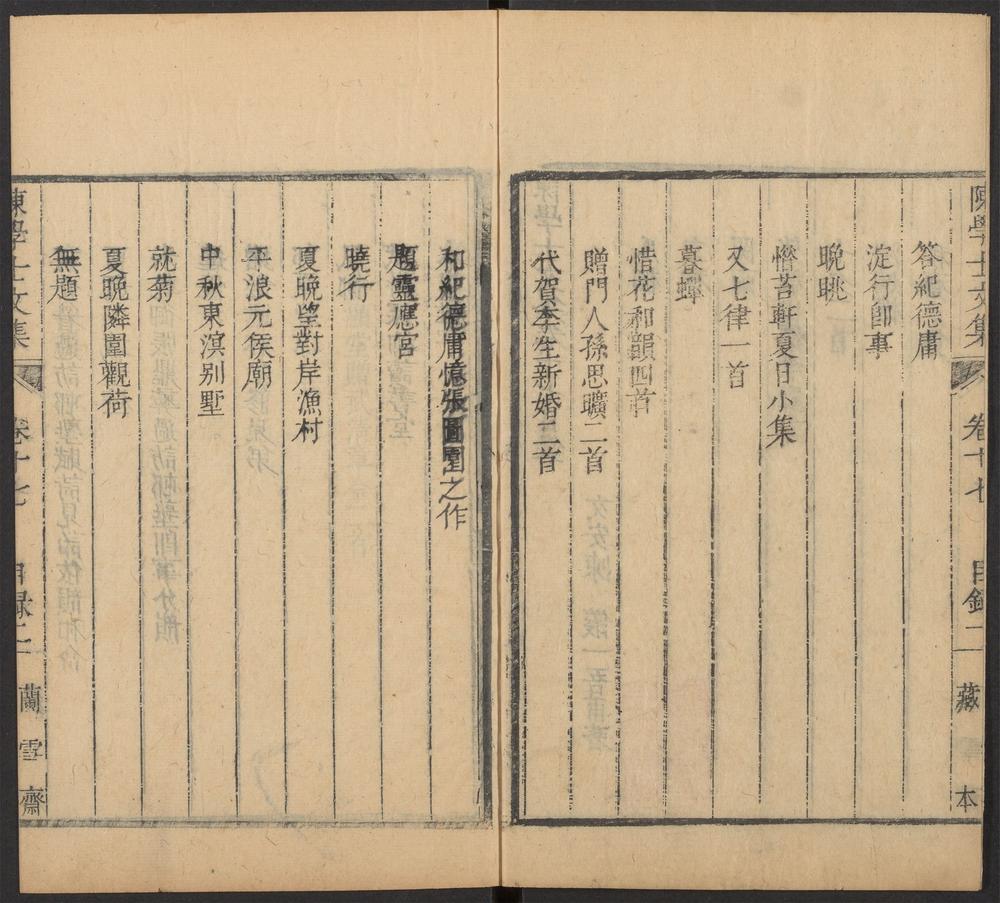 陳學士文集 卷十七 目錄二 藏本
答紀德庸
淀行卽事
晩眺
憯苕軒夏日小集
又七律一首
暮蟬
惜花和韻四首
贈門人孫思曠二首
代賀李生新婚二首
和紀德庸憶張園之作
題靈應宮
曉行
夏晩望對岸漁村
平浪元侯廟
中秋東溟别墅
就菊
夏晩隣園觀荷
無題
陳學士文集 卷十七 目録二 蘭雪齋